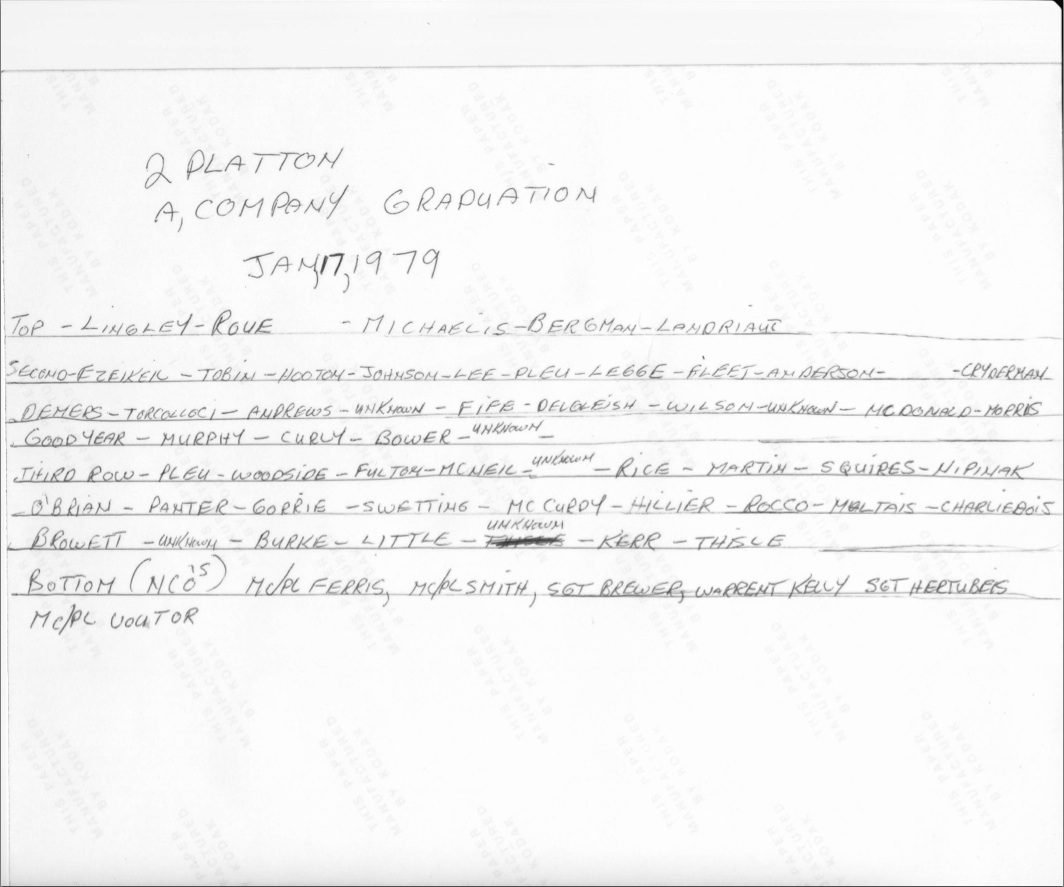 2 PLATTON
A, COMPANY GRADUATION
JAN, 17, 1979
TOP - LINGLEY - ROUE - MICHAELIS - BERGMAN - LANDRIAUT
SECOND - EZEIKEIL - TOBIN - HOOTON - JOHNSON - LEE - PLEU - LEGGE - FLEET - ANDERSON - - CRYDERMAN
DEMERS - TORCOLLOCI - ANDREWS - UNKNOWN - FIFE - DELGLEISH - WILSON - UNKNOWN - MCDONALD - MORRIS
GOODYEAR - MURPHY - CURLY - BOWER - UNKNOWN -
THIRD ROW - PLEU - WOODSIDE - FULTON - MCNEIL - UNKNOWN - RICE - MARTIN - SQUIRES - NIPINAK
O'BRIAN - PANTER - GORRIE - SWETTING - MC CURDY - HILLIER - ROCCO - MALTAIS - CHARLIEBOIS
BROWETT - UNKNOWN - BURKE - LITTLE - UNKNOWN - KERR - THISLE
BOTTOM (NCO'S) MC/PL FERRIS, MC/PL SMITH, SGT BREWER, WARRENT KELLY SGT HERTUBEIS
MC/PL VOUTOR
THIS PAPER
MANUFACTURED
BY KODAK